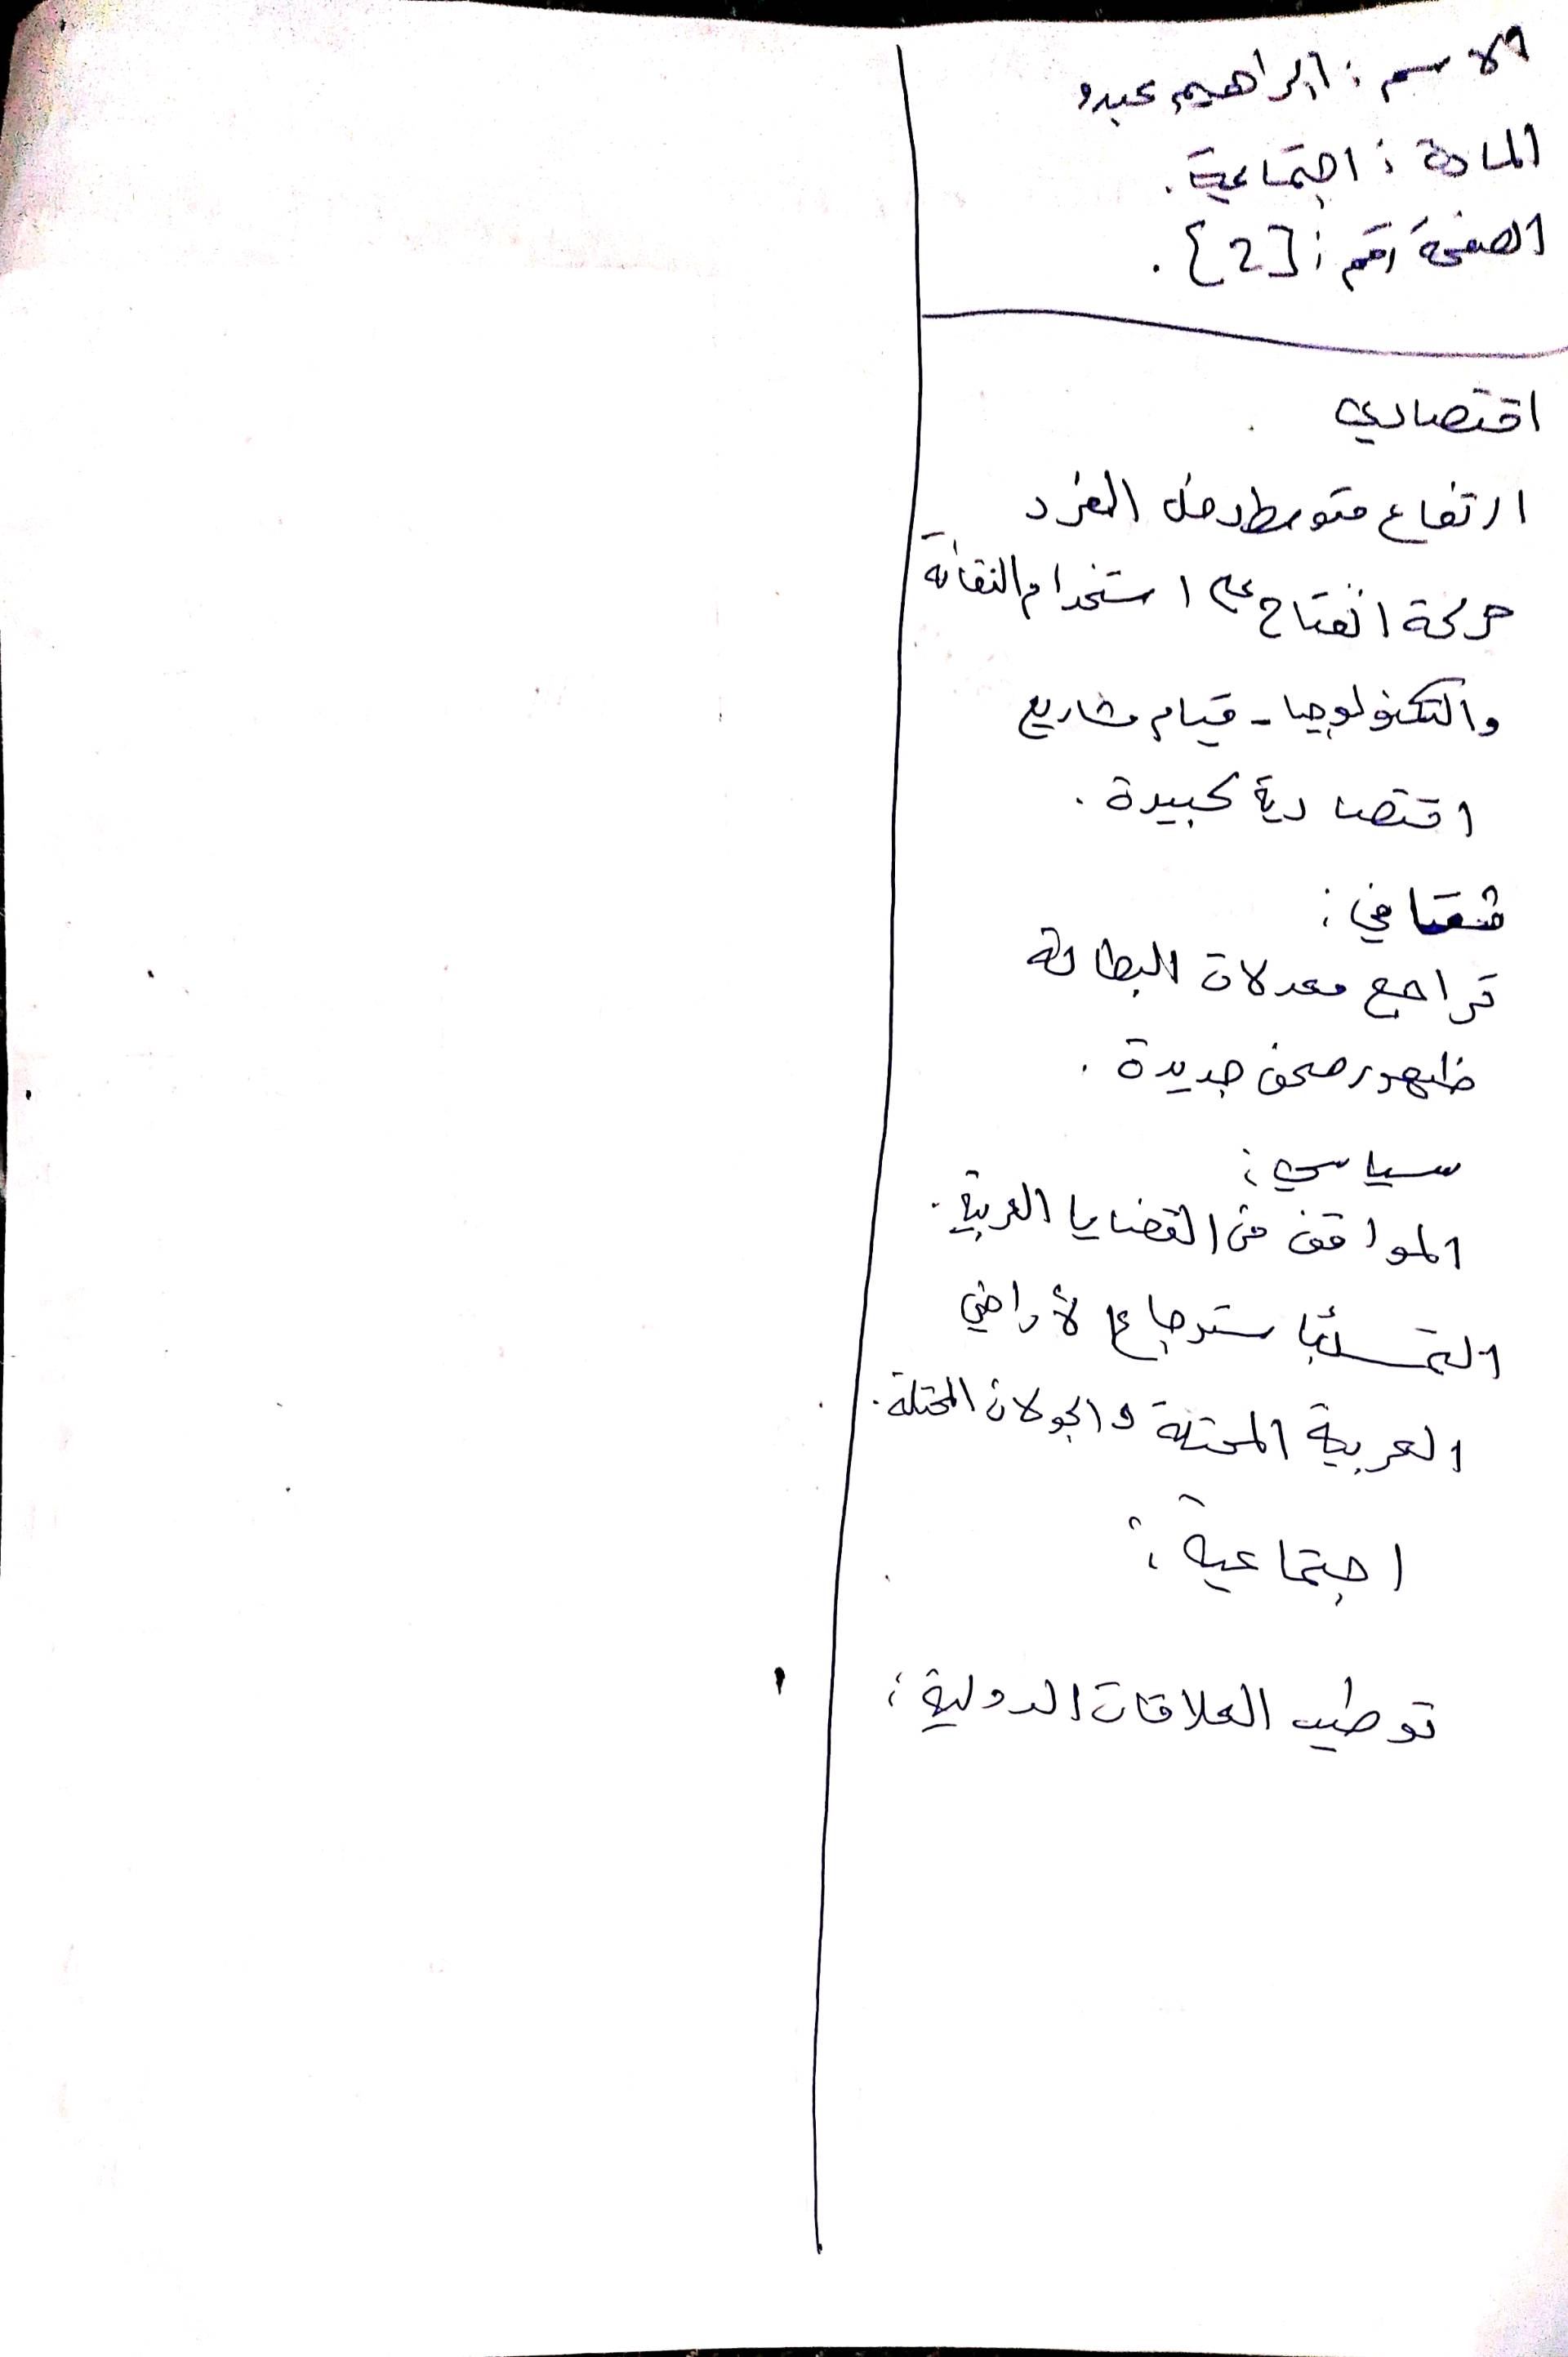 الاسم : ابراهيم عبدو
المادة : اجتماعية .
الصفحة رقم : [2] .
اقتصادي
ارتفاع متوسط دخل الفرد
حركة انفتاح على استخدام التقانة
والتكنولوجيا - قيام مشاريع
اقتصادية كبيرة .
ثقافي :
تراجع معدلات البطالة
ظهور صحف جديدة .
سياسي :
المواقف من القضايا العربية .
التمسك باسترجاع لأراضي
العربية المحتلة والجولان المحتلة .
اجتماعية :
توطيد العلاقات الدولية :